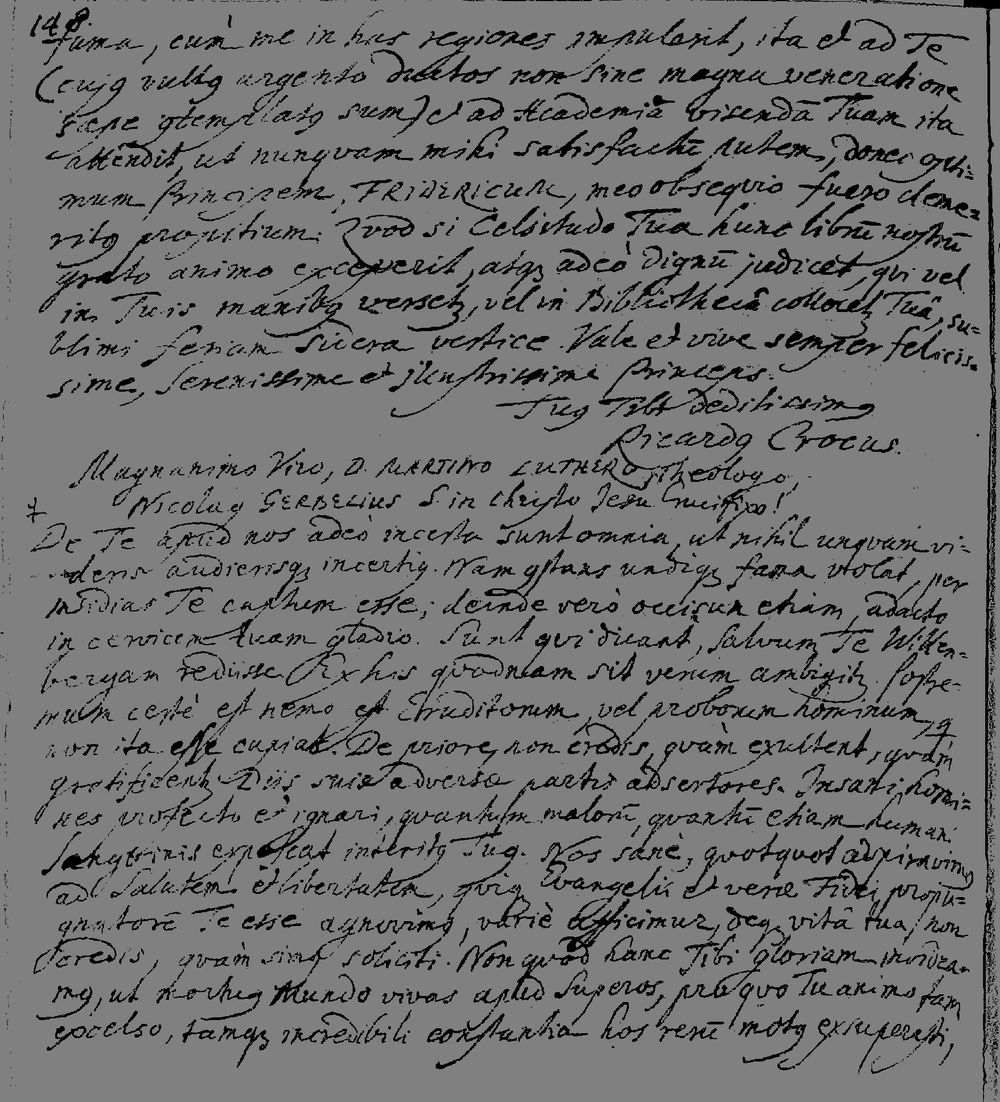 148.
fama, cum me in has regiones impulerit, ita et ad Te
(cujq vultq argento ductos non sine magna veneratione
sæpe qtemplatq sum) et ad Academiā visendā Tuam ita
attendit, ut nunqvam mihi satisfactū putem, donec opti=
mum Principem, FRIDERICUM, meo obseqvio fuero deme=
ritq propitium. Qvod si Celsitudo Tua hunc librū nostrū
grato animo exceperit, atqz adeò dignū judicet, qvi vel
in Tuis manibq versetz, vel in Bibliothecâ collocetz Tuâ, su=
blimi feriam sidera vertice. Vale et vive semper felicis=
sime, Serenissime et Illustrissime Princeps.
Tuq Tibi deditissimq
Ricardq Crocus.
Magnanimo Viro, D. MARTINO LUTHERO, Theologo,
Nicolaq GERBELIUS S in Christo Jesu Crucifixo!
De Te apud nos adeò incerta sunt omnia, ut nihil unqvam vi=
deris audierisqz incertiq. Nam qstans undiqz fama volat, per
insidias Te captum esse; deinde verò occisum etiam, adacto
in cervicem tuam gladio. Sunt qvi dicant, salvum Te Witten=
bergam rediisse. Ex his qvodnam sit verum ambigitz. Postre=
mum certè est nemo et Eruditorum, vel proborum hominum, q
non ita esse cupiat. De priore, non credis, qvàm exultent, qvàm
gratificentz Diis suis adversæ partis adsertores. Insani homi=
nes profecto et ignari, qvantum malorū, qvantū etiam humani
sangvinis expetat interitq Tuq. Nos sanè, qvotqvot adspiravimq
ad Salutem et libertatem, qviq Evangelii et veræ Fidei propu=
gnatorē Te esse agnovimq, variè afficimur, deqz vitâ tua, non
credis, qvàm simq soliciti. Non qvòd hanc Tibi gloriam invidea=
mq, ut mortuq Mundo vivas apud Superos, pro qvo Tu animo tam
excelso, tamqz incredibili constantia hos rerū motq exsuperasti,